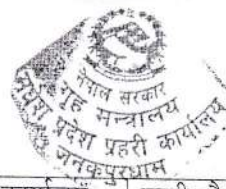 नेपाल सरकार
गृह मन्त्रालय
मधेश प्रदेश प्रहरी कार्यालय
जनकपुरधाम